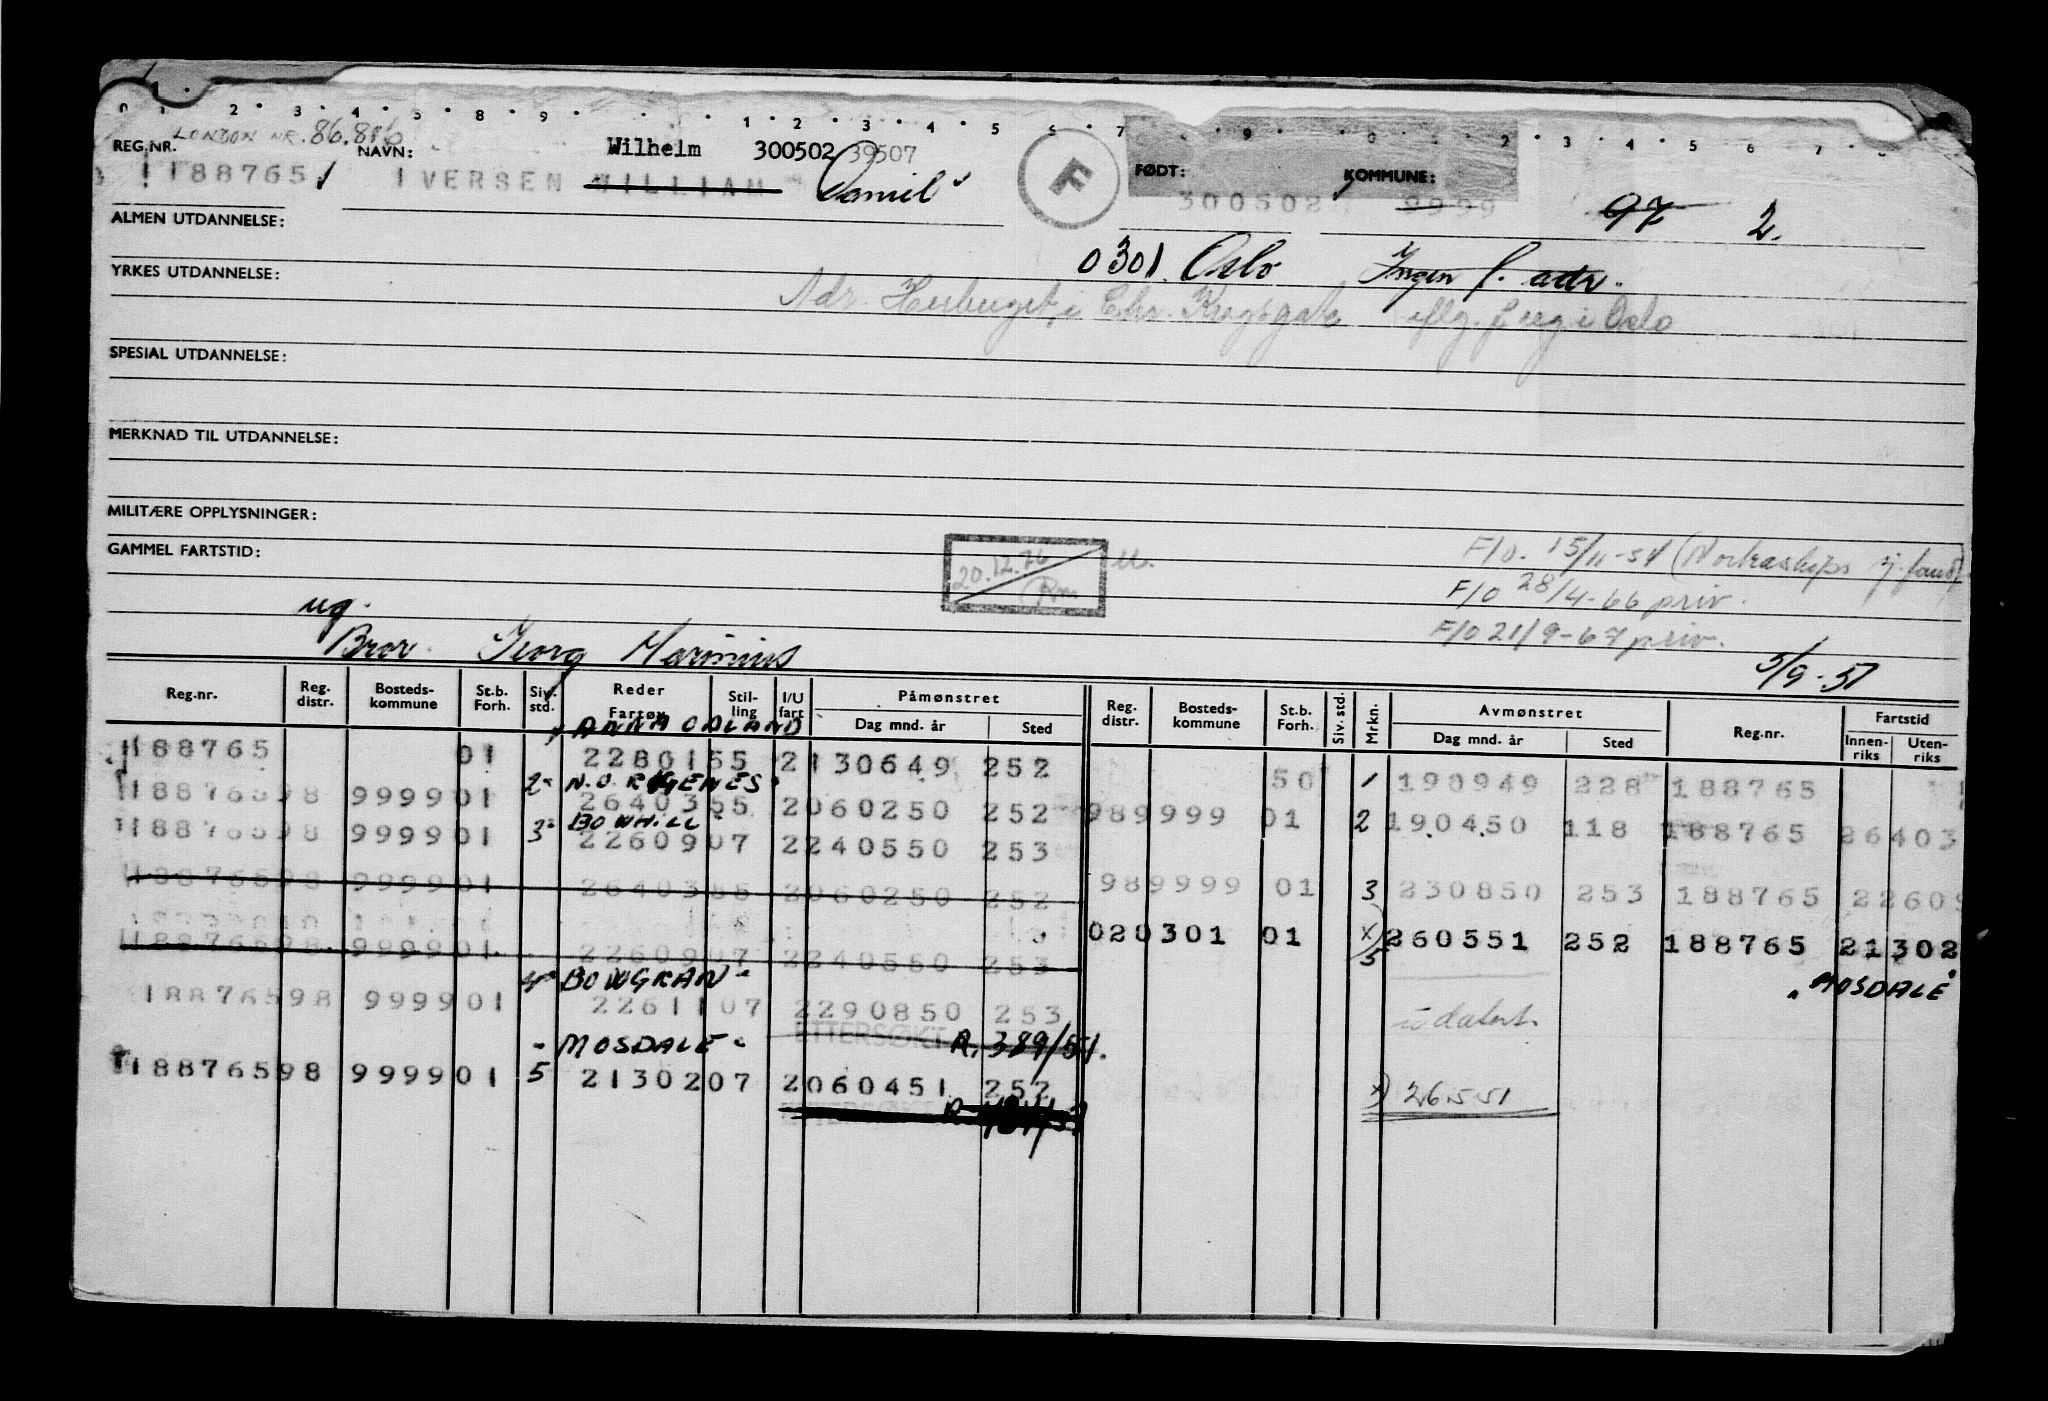 0 1 2 3 4 5 8 9 1 2 3 4 5 6 7 9 0 2 3 4 5 6 7
LONDON NR. 86.816
REG.NR. NAVN: Wilhelm 300502 39507 F FØDT: KOMMUNE:
188765 IVERSEN WILLIAM Daniel 300502 9999 97 2.
ALMEN UTDANNELSE:
0301 Oslo Ingen f. adr.
YRKES UTDANNELSE:
Adr. Herberget i Chr. Krogsgate iflg. f. reg i Oslo
SPESIAL UTDANNELSE:
MERKNAD TIL UTDANNELSE:
MILITÆRE OPPLYSNINGER:
GAMMEL FARTSTID:
20.12.76 Rm U.
F/O. 15/11-54 (Nortraships sj. fond)
F/O 28/4-66 priv.
F/O 21/9-67 priv.
ug.
Bror. Georg Marinius
5/9-51
Reg.nr. Reg. distr. Bosteds-kommune St.b. Forh. Siv. std. Reder Fartøy Stil-ling I/U fart Påmønstret Dag mnd. år Sted Reg. distr. Bosteds-kommune St.b. Forh. Siv. std. Mrkn. Avmønstret Dag mnd. år Sted Reg.nr. Fartstid Innen-riks Uten-riks
ANNA ODLAND
188765 01 22801 55 2 130649 252 50 1 190949 228 188765
2 N.O. ROGENES
188765 98 9999 01 26403 55 2 060250 252 98 9999 01 2 190450 118 188765 26403
3 BOWHILL
188765 98 9999 01 22609 07 2 240550 253
188765 98 9999 01 26403 55 2 060250 252 98 9999 01 3 230850 253 188765 22609
02 0301 01 x) 5 260551 252 188765 21302
188765 98 9999 01 22609 07 2 240550 253
4 BOWGRAN "MOSDALE"
188765 98 9999 01 22611 07 2 290850 253 udatert.
"MOSDALE" ETTERSØKT R. 389/51.
188765 98 9999 01 5 21302 07 2 060451 252 x) 26.5.51
ETTERSØKT R.